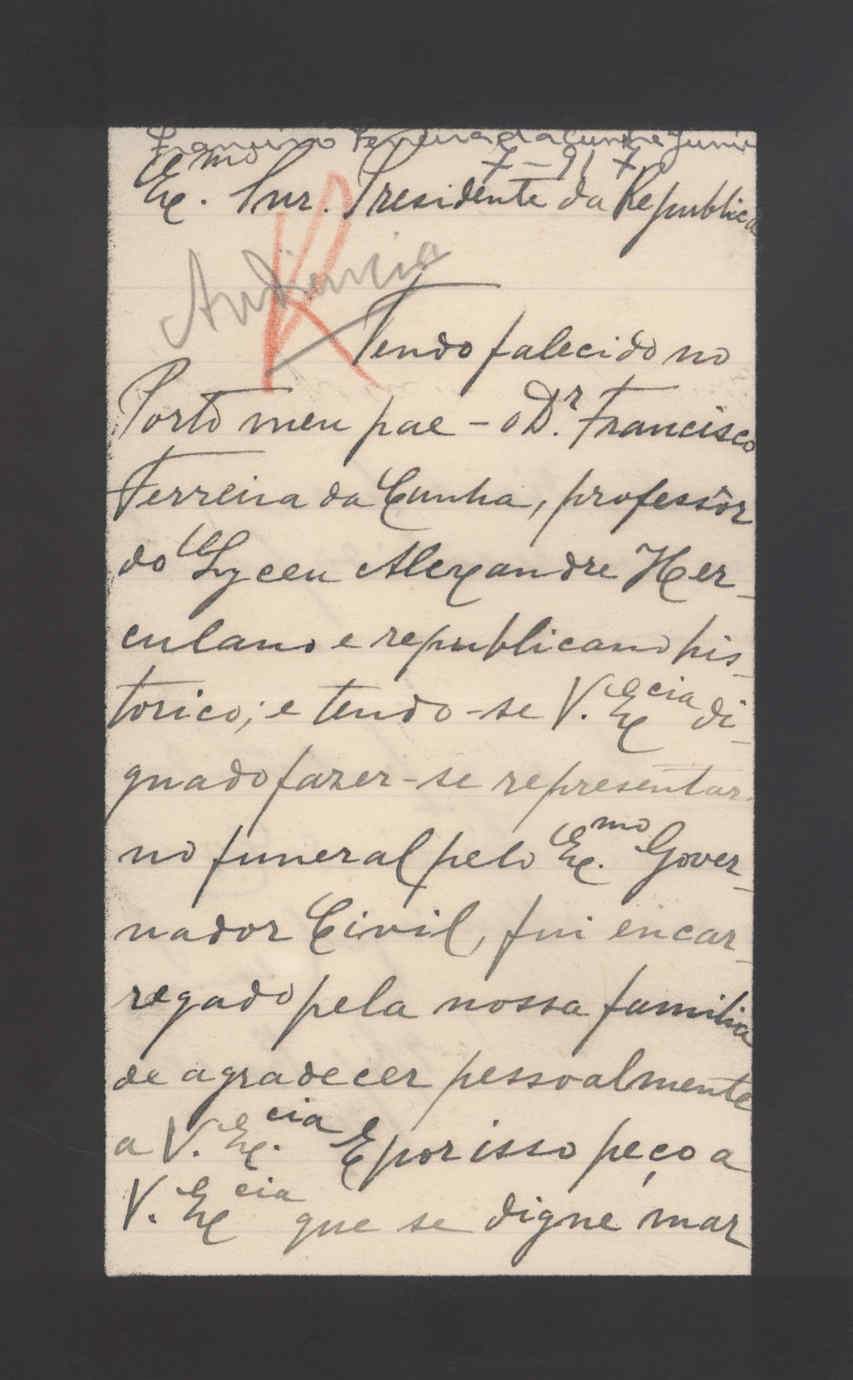 Francisco Ferreira da Cunha Junior
Ex.mo Snr. Presidente da Republica
Audiencia
R
Tendo falecido no
Porto meu pae - o D.r Francisco
Ferreira da Cunha, professôr
do Lyceu Alexandre Her-
culano e republicano his-
torico; e tendo-se V. Ex.cia di-
gnado fazer-se representar
no funeral pelo Ex.mo Gover-
nador Civil, fui encar-
regado pela nossa familia
de agradecer pessoalmente
a V. Ex.cia E por isso peço a
V. Ex.cia que se digne mar